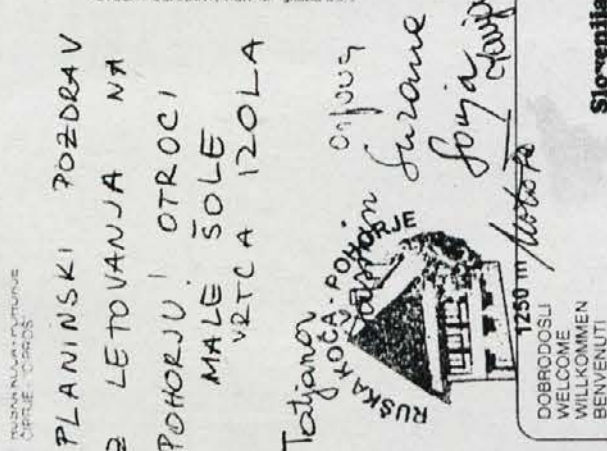 PLANINSKI POZDRAV
Z LETOVANJA NA
POHORJU! OTROCI
MALE ŠOLE
VRTCA IZOLA
Tatjana
Suzane
Sonja
RUŠKA KOČA - POHORJE
1250 m
DOBRODOŠLI
WELCOME
WILLKOMMEN
BENVENUTI
Slovenija